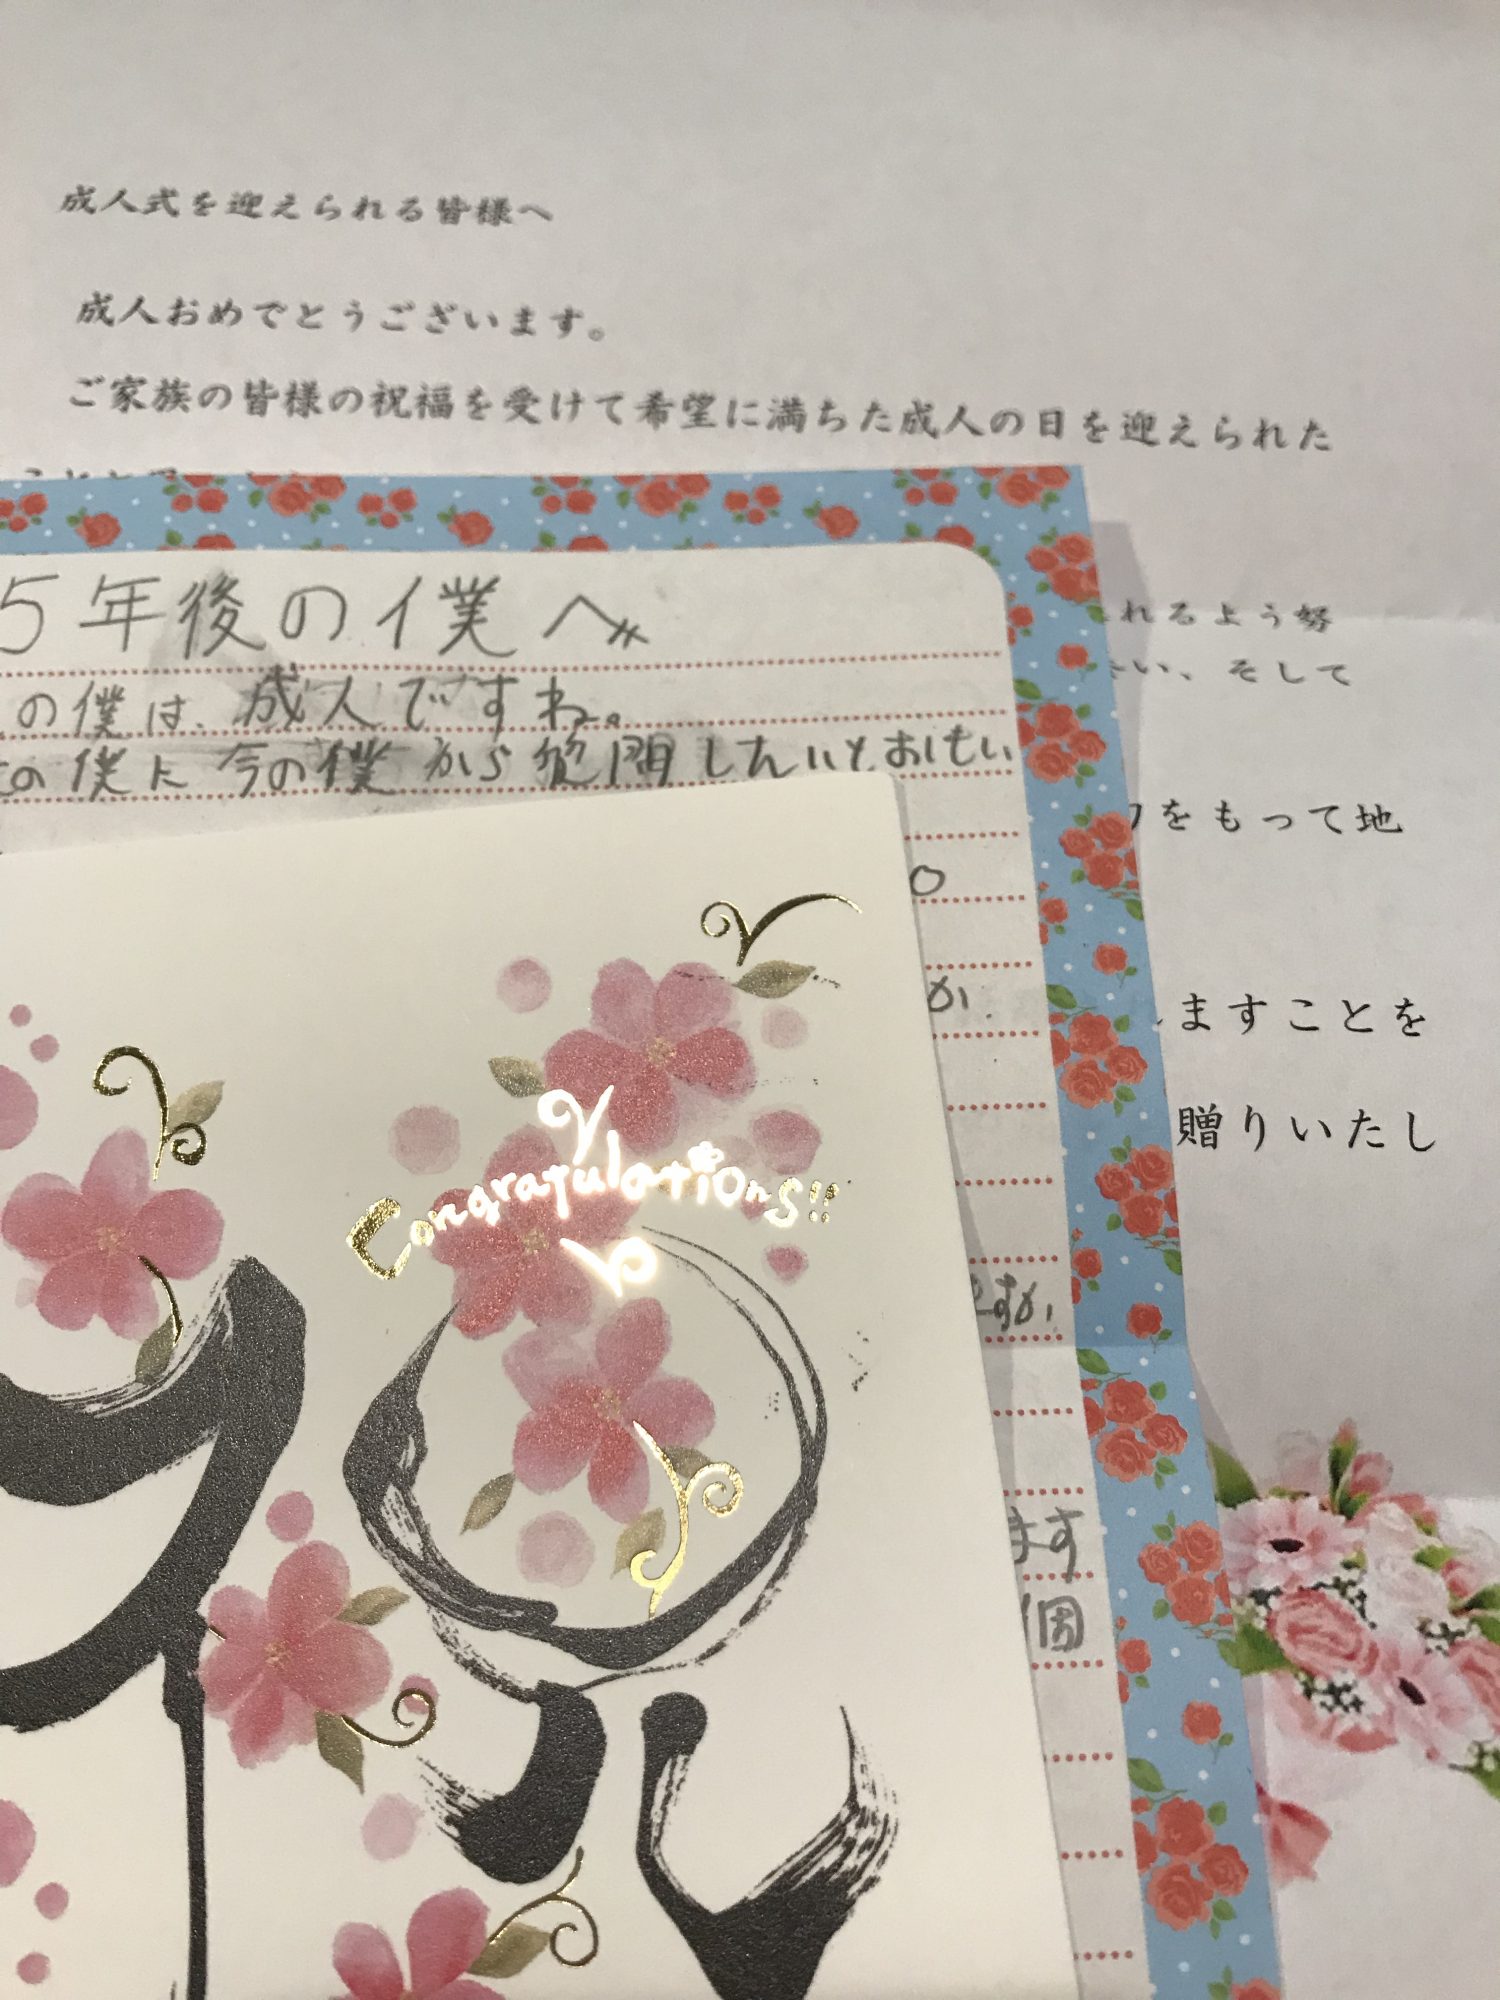 成人式を迎えられる皆様へ
成人おめでとうございます。
ご家族の皆様の祝福を受けて希望に満ちた成人の日を迎えられた
れるよう努
い、そして
をもって地
ますことを
贈りいたし
5年後の僕へ
の僕は、成人ですね。
の僕に今の僕から質問したいとおもい
か
ですか、
ます
個
Congratulations!!
祝